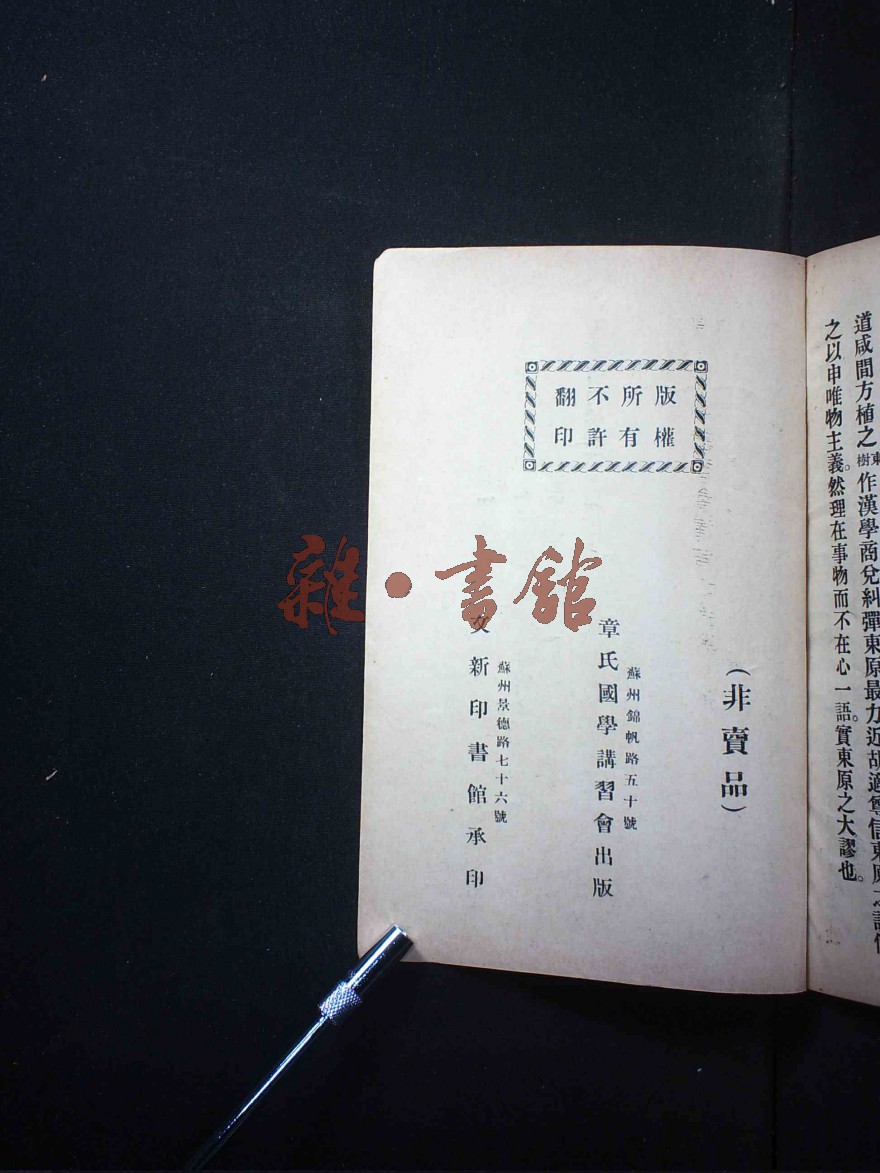 道咸間方植之東樹作漢學商兌糾彈東原最力近胡適尊信東原之說
之以申唯物主義。然理在事物而不在心一語。實東原之大謬也。
版權所有不許翻印
（非賣品）
蘇州錦帆路五十號
章氏國學講習會出版
蘇州景德路七十六號
文新印書館承印
雜·書館